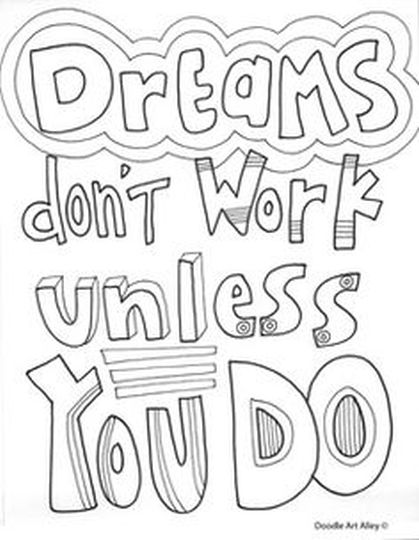 DreAMS
don'T Work
unless
YOU DO
Doodle Art Alley ©